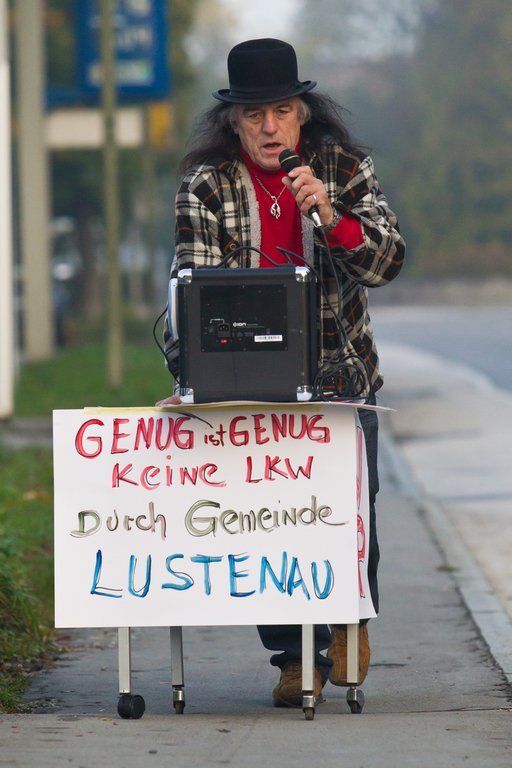 iON
GENUG ist GENUG
KEINE LKW
Durch Gemeinde
LUSTENAU